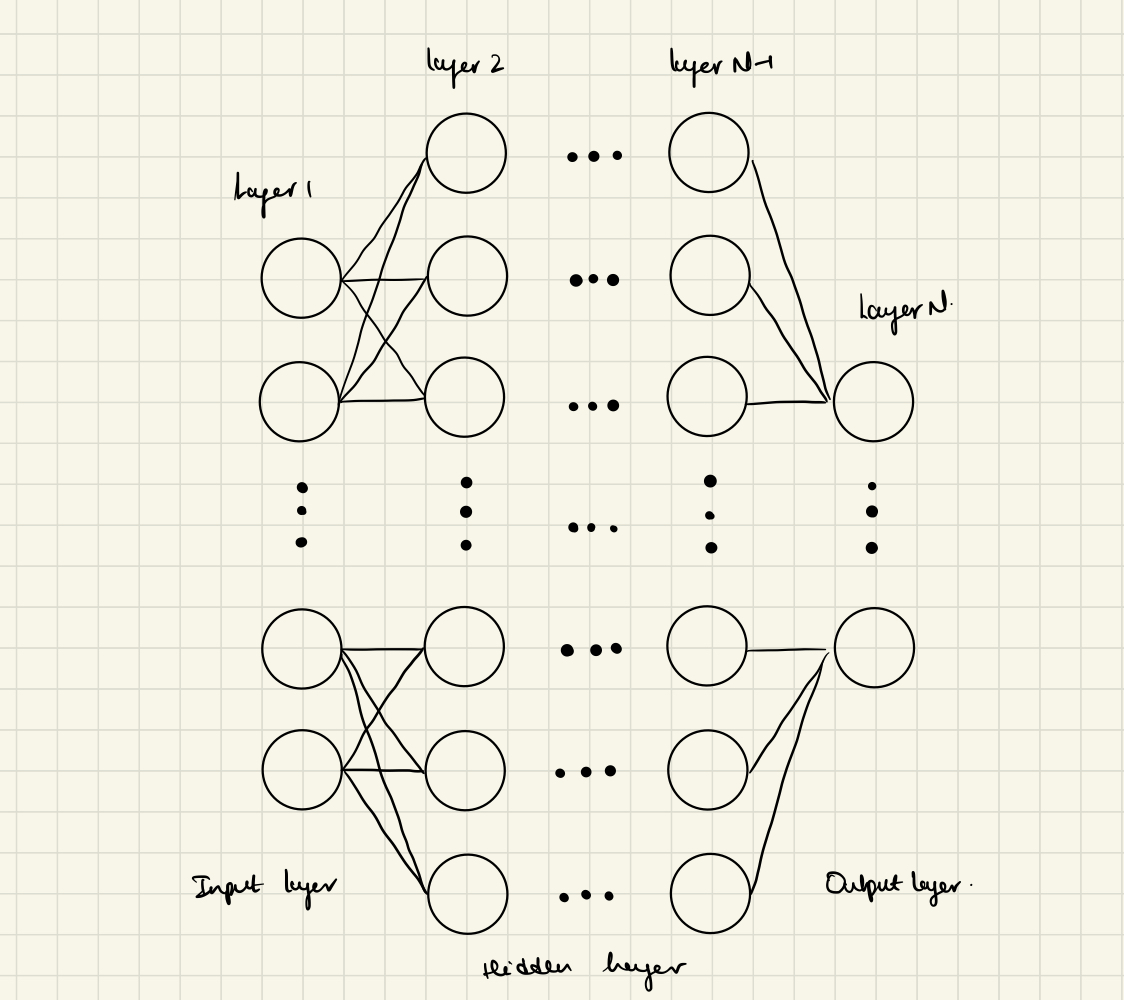 layer 2
layer N-1
Layer 1
Layer N.
Input layer
Output layer.
Hidden layer